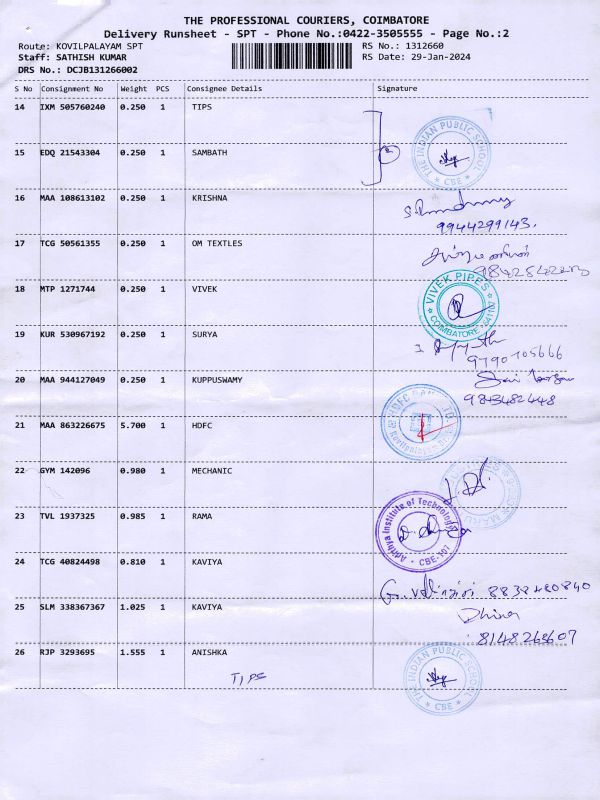 THE PROFESSIONAL COURIERS, COIMBATORE
Delivery Runsheet - SPT - Phone No.:0422-3505555 - Page No.:2
Route: KOVILPALAYAM SPT
RS No.: 1312660
Staff: SATHISH KUMAR
RS Date: 29-Jan-2024
DRS No.: DCJB131266002
S No Consignment No Weight PCS Consignee Details Signature
14 IXM 505760240 0.250 1 TIPS
THE INDIAN PUBLIC SCHOOL
* CBE *
15 EDQ 21543304 0.250 1 SAMBATH
16 MAA 108613102 0.250 1 KRISHNA
9944299143.
17 TCG 50561355 0.250 1 OM TEXTILES
18 MTP 1271744 0.250 1 VIVEK
VIVEK PIPES
COIMBATORE - 641107
19 KUR 530967192 0.250 1 SURYA
9790705666
20 MAA 944127049 0.250 1 KUPPUSWAMY
21 MAA 863226675 5.700 1 HDFC
22 GYM 142096 0.980 1 MECHANIC
23 TVL 1937325 0.985 1 RAMA
Adithya Institute of Technology
CBE-107
24 TCG 40824498 0.810 1 KAVIYA
25 SLM 338367367 1.025 1 KAVIYA
Dhina
8148268607
26 RJP 3293695 1.555 1 ANISHKA
TIPS
THE INDIAN PUBLIC SCHOOL
* CBE *